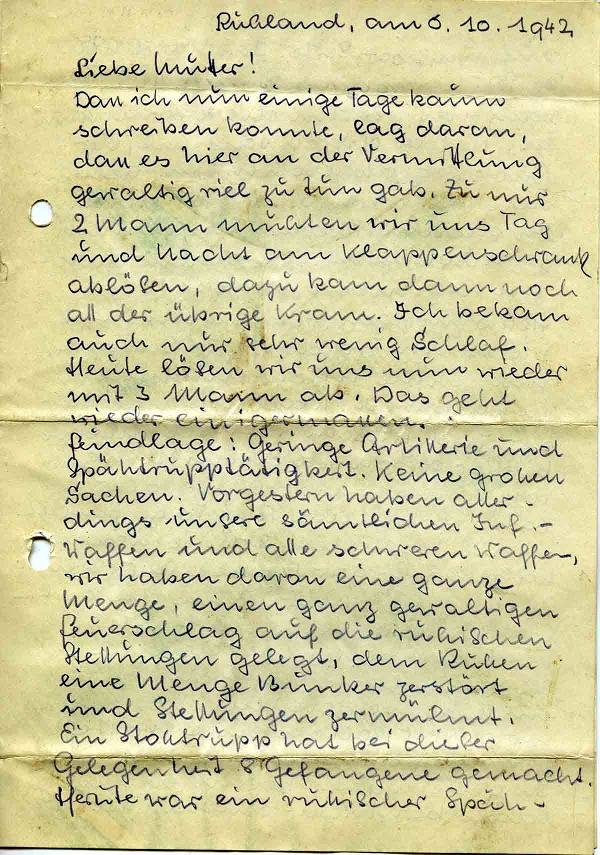 Rußland, am 6.10.1942
Liebe Mutter!
Daß ich nun einige Tage kaum
schreiben konnte, lag daran,
daß es hier an der Vermittlung
gewaltig viel zu tun gab. Zu nur
2 Mann mußten wir uns Tag
und Nacht am Klappenschrank
ablösen, dazu kam dann noch
all der übrige Kram. Ich bekam
auch nur sehr wenig Schlaf.
Heute lösen wir uns nun wieder
mit 3 Mann ab. Das geht
wieder einigermaßen.
Feindlage: Geringe Artillerie und
Spähtrupptätigkeit. Keine großen
Sachen. Vorgestern haben aller-
dings unsere sämtlichen Inf.-
Waffen und alle schweren Waffen,
wir haben davon eine ganze
Menge, einen ganz gewaltigen
Feuerschlag auf die rußischen
Stellungen gelegt, dem Rußen
eine Menge Bunker zerstört
und Stellungen zermürmt.
Ein Stoßtrupp hat bei dieser
Gelegenheit 8 Gefangene gemacht.
Heute war ein rußischer Späh-